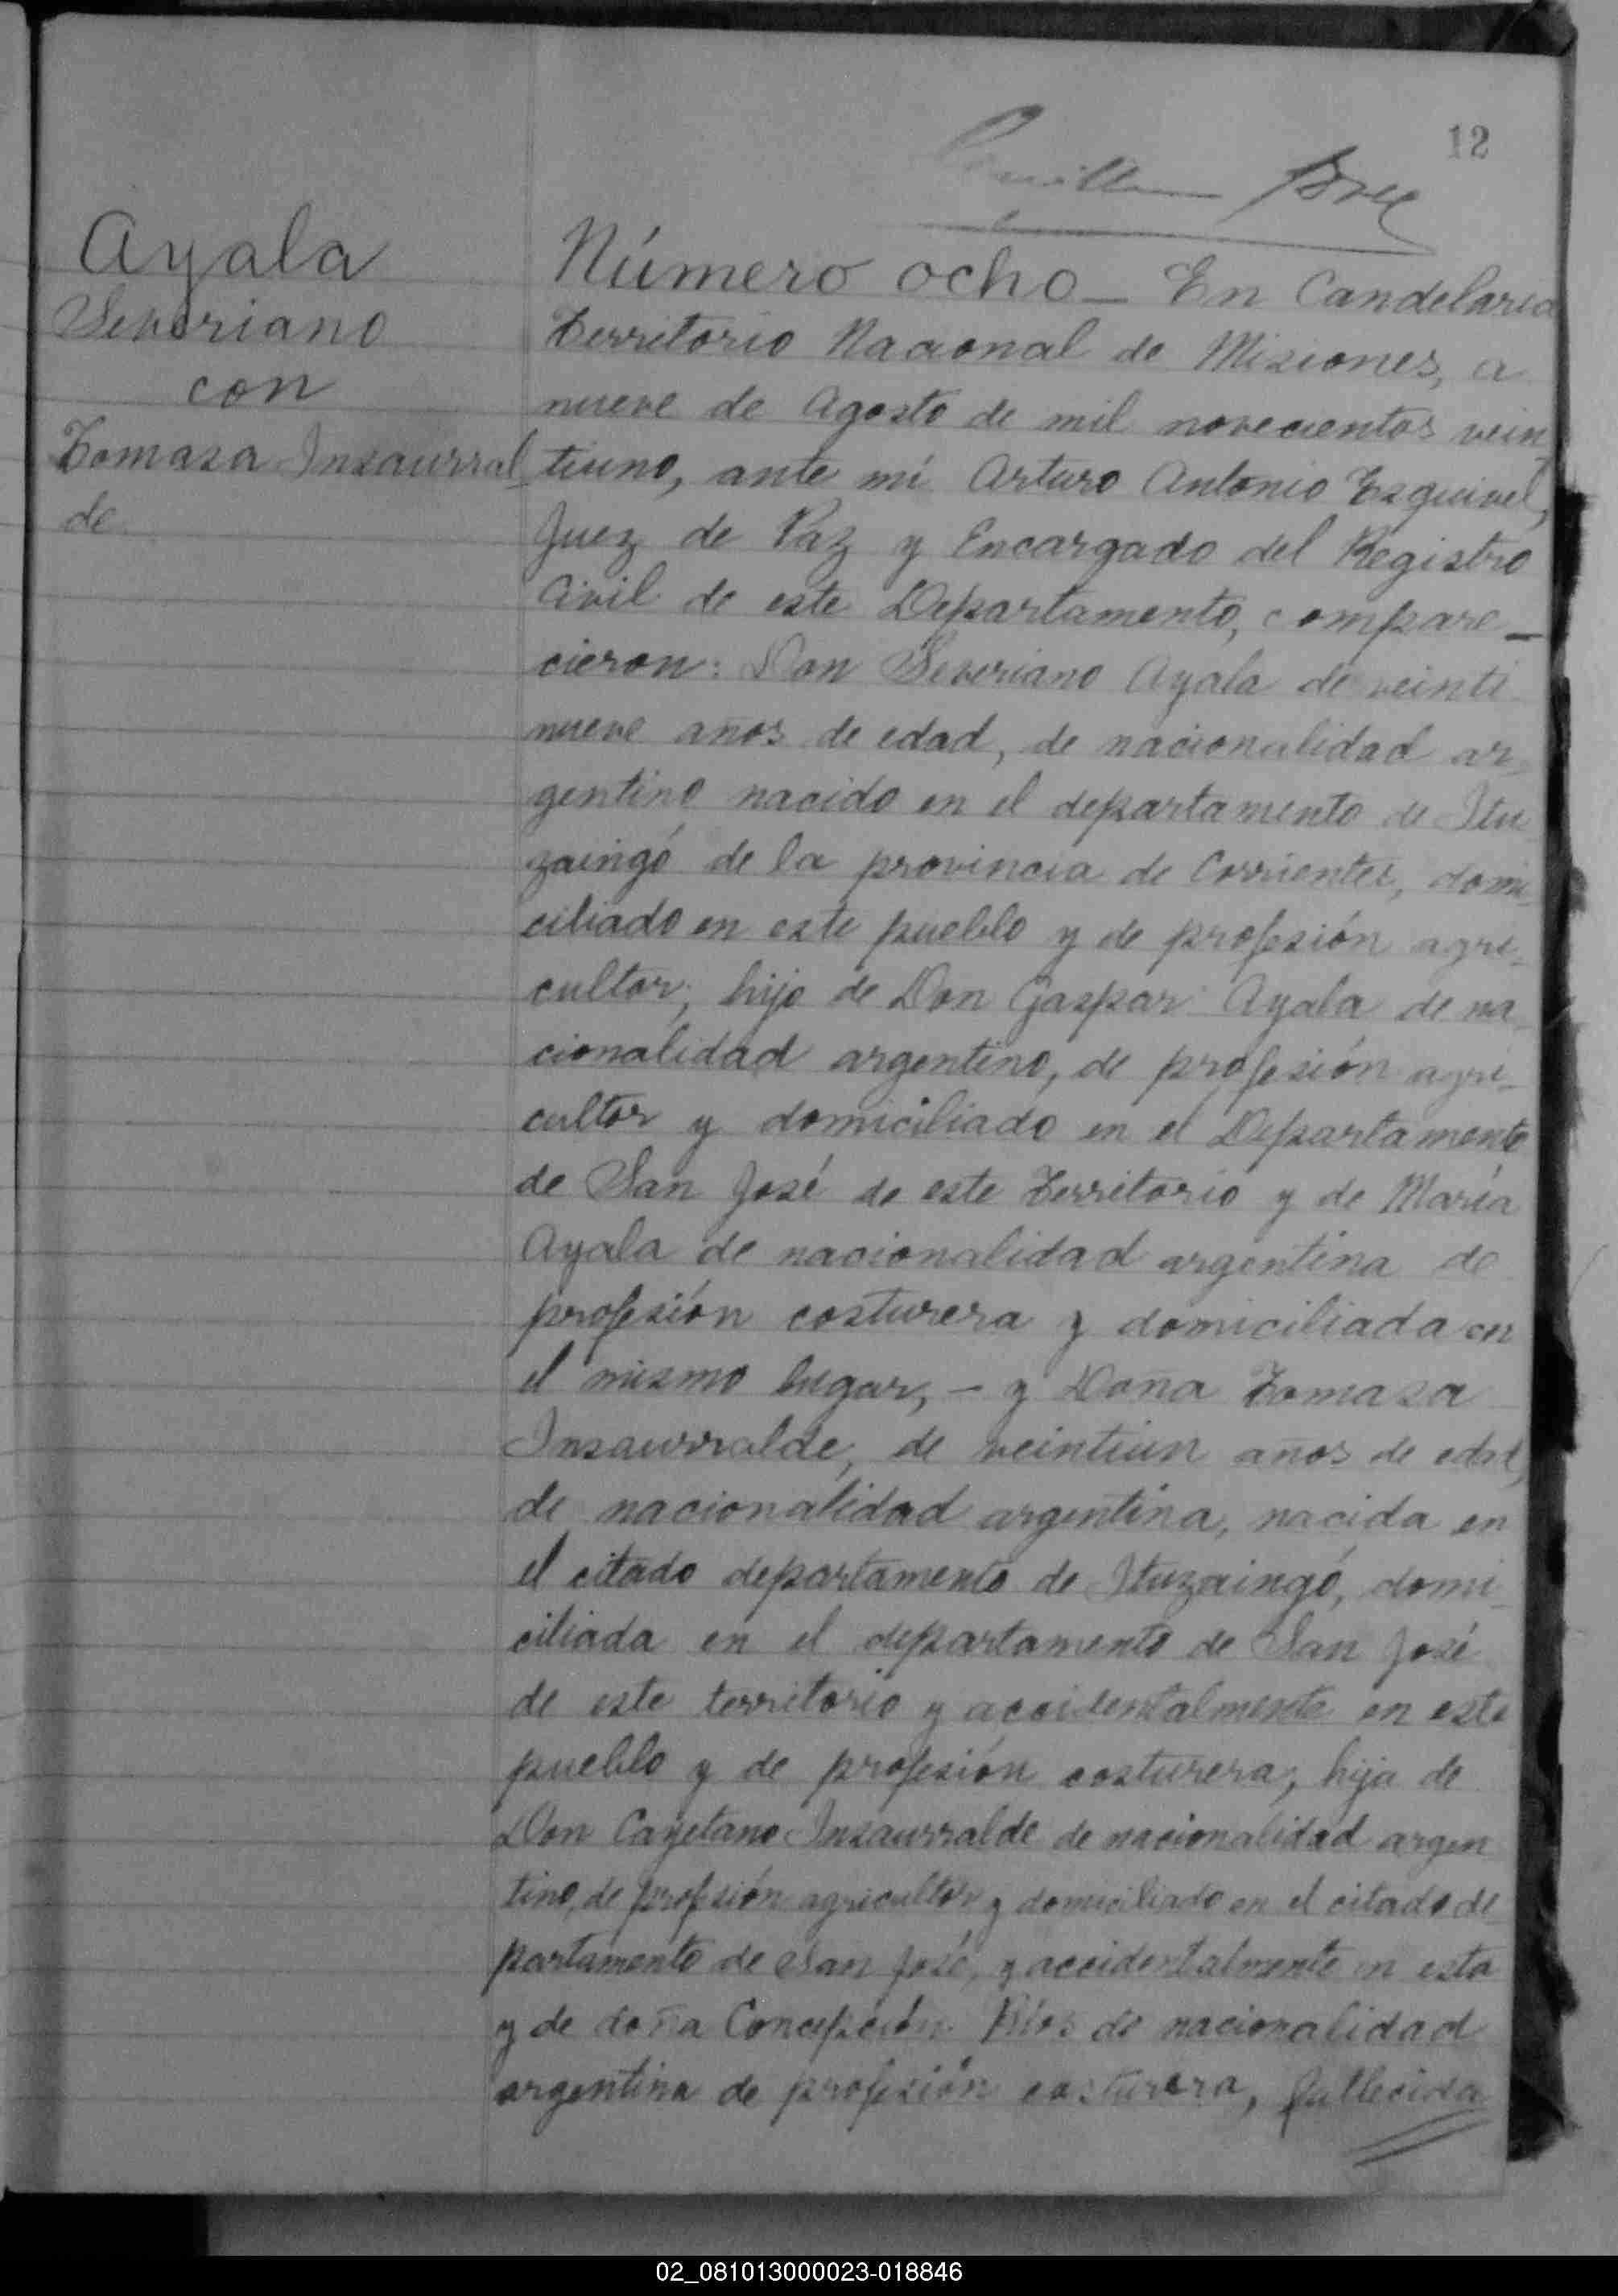 12
Ayala
Severiano
con
Tomasa Insaurral
de
Número ocho_ En Candelaria
Territorio Nacional de Misiones, a
nueve de Agosto de mil novecientos vein_
tiuno, ante mí Arturo Antonio Esquivel,
Juez de Paz y Encargado del Registro
Civil de este Departamento, compare_
cieron: Don Severiano Ayala de veinti
nueve años de edad, de nacionalidad ar_
gentino nacido en el departamento de Itu
zaingó de la provincia de Corrientes, domi_
ciliado en este pueblo y de profesión agri_
cultor; hijo de Don Gaspar Ayala de na_
cionalidad argentino, de profesión agri_
cultor y domiciliado en el Departamento
de San José de este Territorio y de María
Ayala de nacionalidad argentina de
profesión costurera y domiciliada en
el mismo lugar, – y Doña Tomasa
Insaurralde, de veintiun años de edad,
de nacionalidad argentina, nacida en
el citado departamento de Ituzaingó, domi_
ciliada en el departamento de San José
de este territorio y accidentalmente en este
pueblo y de profesión costurera, hija de
Don Cayetano Insaurralde de nacionalidad argen
tino, de profesión agricultor y domiciliado en el citado de_
partamento de San José, y accidentalmente en esta
y de doña Concepción Ríos de nacionalidad
argentina de profesión costurera, fallecida
02_081013000023-018846